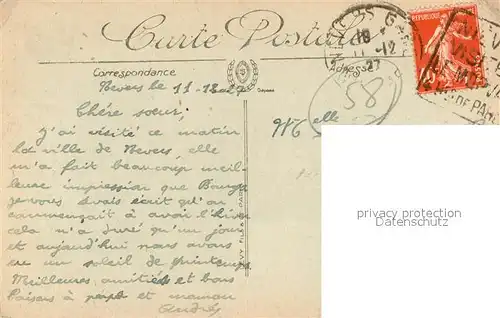 Carte Postale
Correspondance
Adresse
Nevers le 11-12-27
Chère soeur,
J'ai visité ce matin
la ville de Nevers, elle
m'a fait beaucoup meil-
leure impression que Bourges
je vous avais écrit qu'on
commençait à avoir l'hiver
cela n'a duré qu'un jour
et aujourd'hui nous avons
eu un soleil de printemps
Meilleures amitiés et bons
baisers à papa et maman
André
Melle
58
NEVERS GARE
18
11-12
27
REPUBLIQUE
privacy protection
Datenschutz